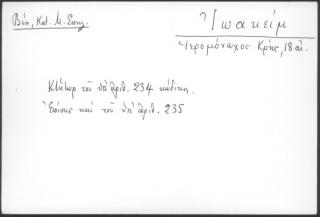 Βέη, Κατ. Μ. Σινᾶ.
Ἰωακείμ
Ἱερομόναχος Κρής, 18 αἰ.
Κτήτωρ τοῦ ὑπ' ἀριθ. 234 κώδικος.
Ἐπίσης καὶ τοῦ ὑπ' ἀριθ. 235